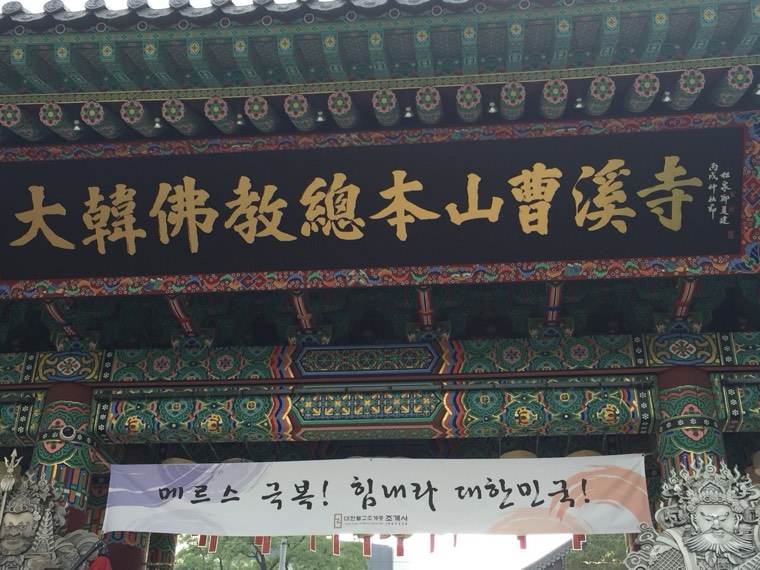 大韓佛敎總本山曹溪寺
丙戌仲秋節
메르스 극복! 힘내라 대한민국!
대한불교조계종 조계사